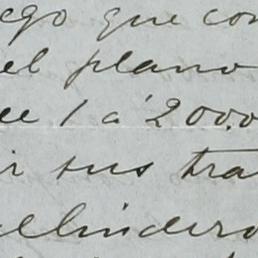 ego que con
el plano
de 1 á 2000
ir sus tra
llindero